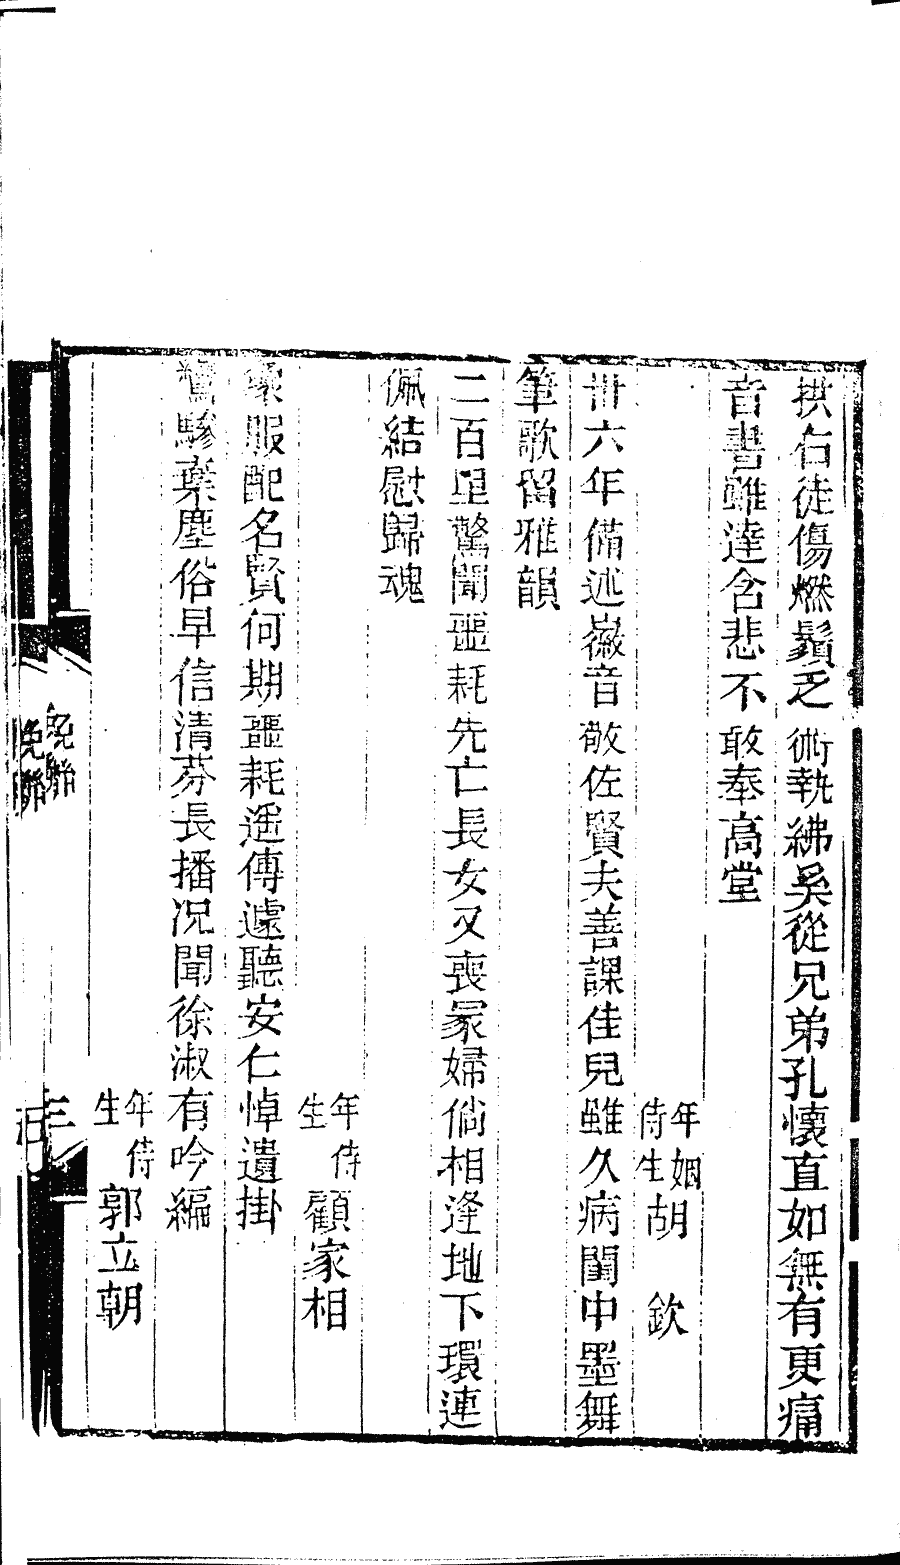 拱右徒傷燃鬚乏術執紼奚從兄弟孔懷直如無有更痛
音書雖達含悲不敢奉高堂
年姻侍生胡　欽
卅六年備述徽音敬佐賢夫善課佳兒雖久病閨中墨舞
筆歌留雅韻
二百里驚聞噩耗先亡長女又喪冢婦倘相逢地下環連
佩結慰歸魂
年侍生顧家相
象服配名賢何期噩耗遥傳遽聽安仁悼遺掛
鸞驂棄塵俗早信清芬長播况聞徐淑有吟編
年侍生郭立朝